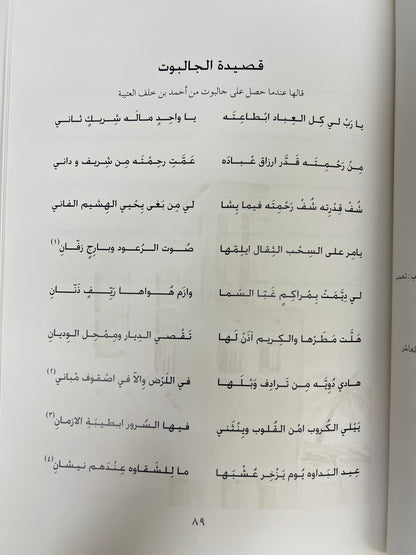 قصيدة الجالبوت
قالها عندما حصل على جالبوت من أحمد بن خلف العتيبة
يا رَبْ لي كل العِباد ابْطاعِتَه يا واحِدٍ مالَه شِريكٍ ثاني
مِن رَحْمِتَه قَدَّر ارزاق عْبادَه عَمَّتِ رحِمْتَه مِن شِريف و داني
شُفْ قِدِرتِه شُفْ رَحْمِتَه فيما يِشا لي مِن بَغى يِحْيي الهِشيم الفاني
يامِر على السِحْب الثِقال ايلِمْها صُوت الرُعود وبارِجٍ زَفّانِ (١)
لي دِيَّمَتْ بِمْراكِمٍ غَبّا السَما وازَم هُواها رَيِّفٍ ذَنّانِ
هَلَّت مَطَرْها والكِريم آذَنْ لَها تَفْصي الدِيار ومِمْحِل الوِديانِ
هادي دُوِيَّه مِن تَرادِف وَبْلَها في اللَرْض وِالآ في اصْفوف مْباني (٢)
يَبْلي الكْروب امْن القُلوب ويِنْثَني فيها السُرور ابْطيبَةِ الازمانِ (٣)
عِيد البَداوِه يُوم يَزْخِر عُشْبَها ما لِلشَقاوِه عِنْدَهم نيشانِ (٤)
٨٩